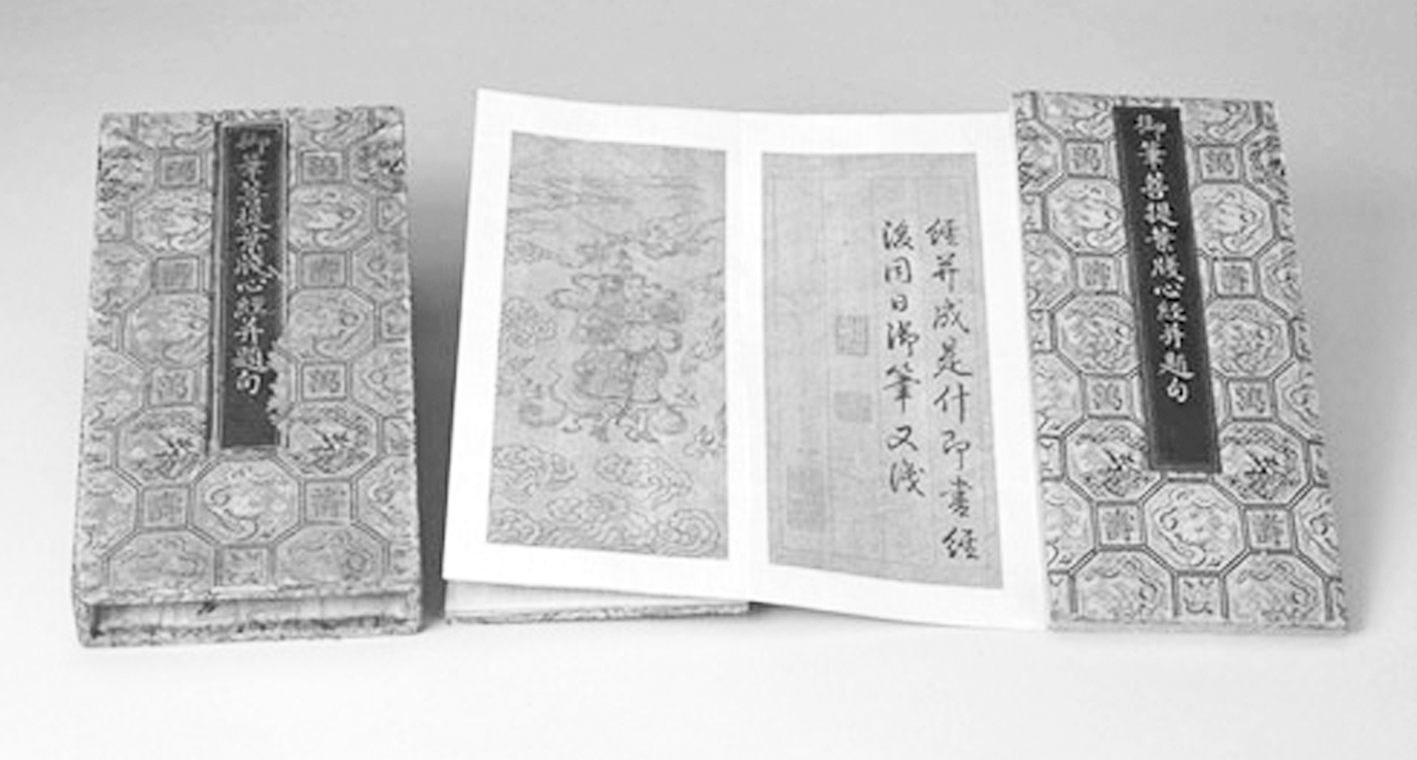 御筆菩提葉牋心經并題句
經并成是什即書經
後同日御筆又識
御筆菩提葉牋心經并題句